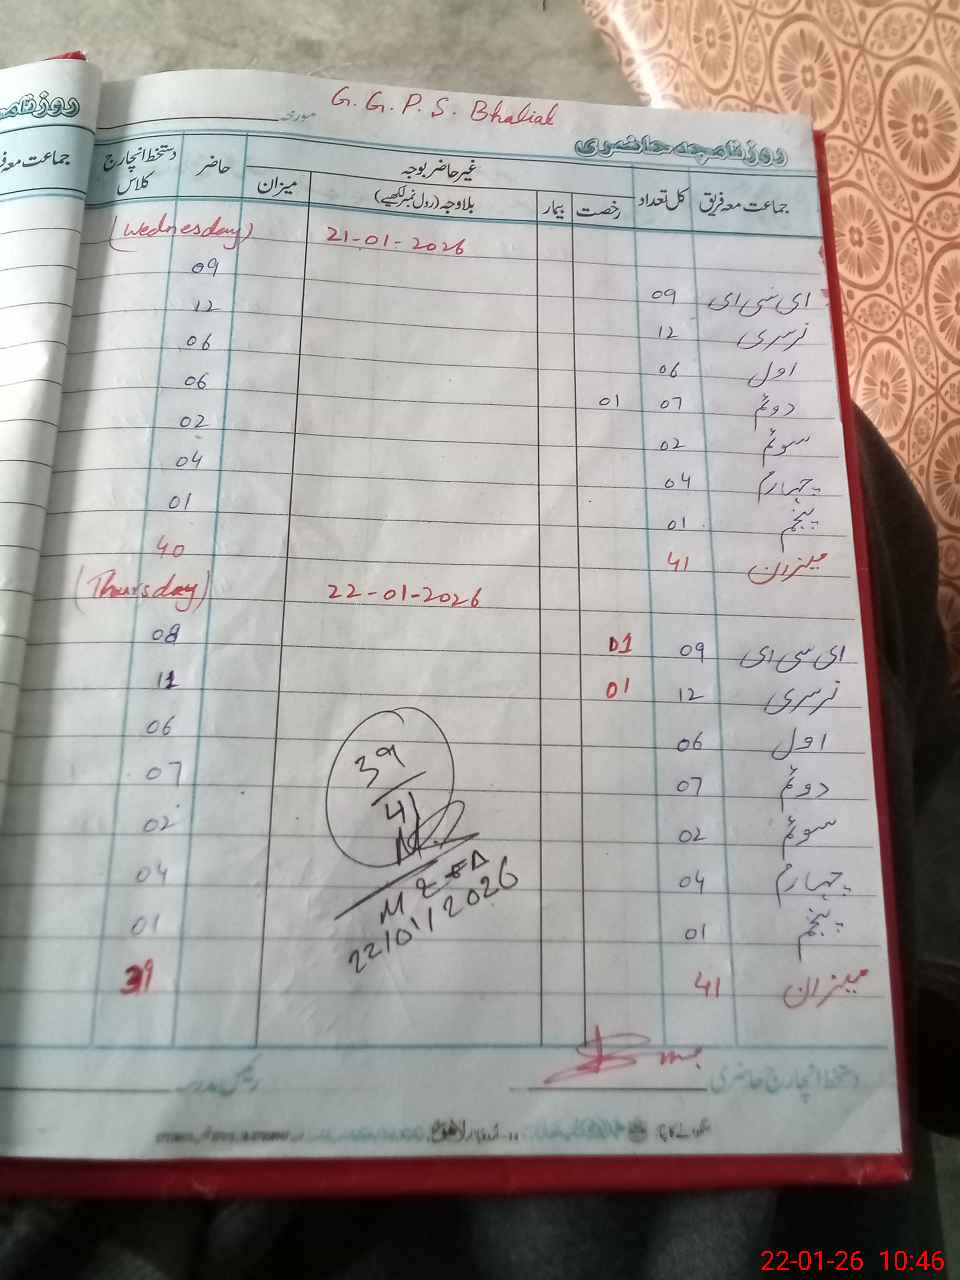 G. G. P. S. Bhaliak
روزنامچہ حاضری
مورخہ
جماعت معہ فریق کل تعداد غیر حاضر بوجہ حاضر دستخط انچارج کلاس
رخصت بیمار بلاوجہ (رول نمبر لکھیے) میزان
21-01-2026 (Wednesday)
ای سی ای 09 09
نرسری 12 12
اول 06 06
دوئم 07 01 06
سوئم 02 02
چہارم 04 04
پنجم 01 01
میزان 41 40
22-01-2026 (Thursday)
ای سی ای 09 01 08
نرسری 12 01 11
اول 06 06
دوئم 07 07
سوئم 02 02
چہارم 04 04
پنجم 01 01
میزان 41 39
39
41
22/01/2026
دستخط انچارج حاضری رئیس مدرسہ
روزنامچہ
جماعت معہ
22-01-26 10:46